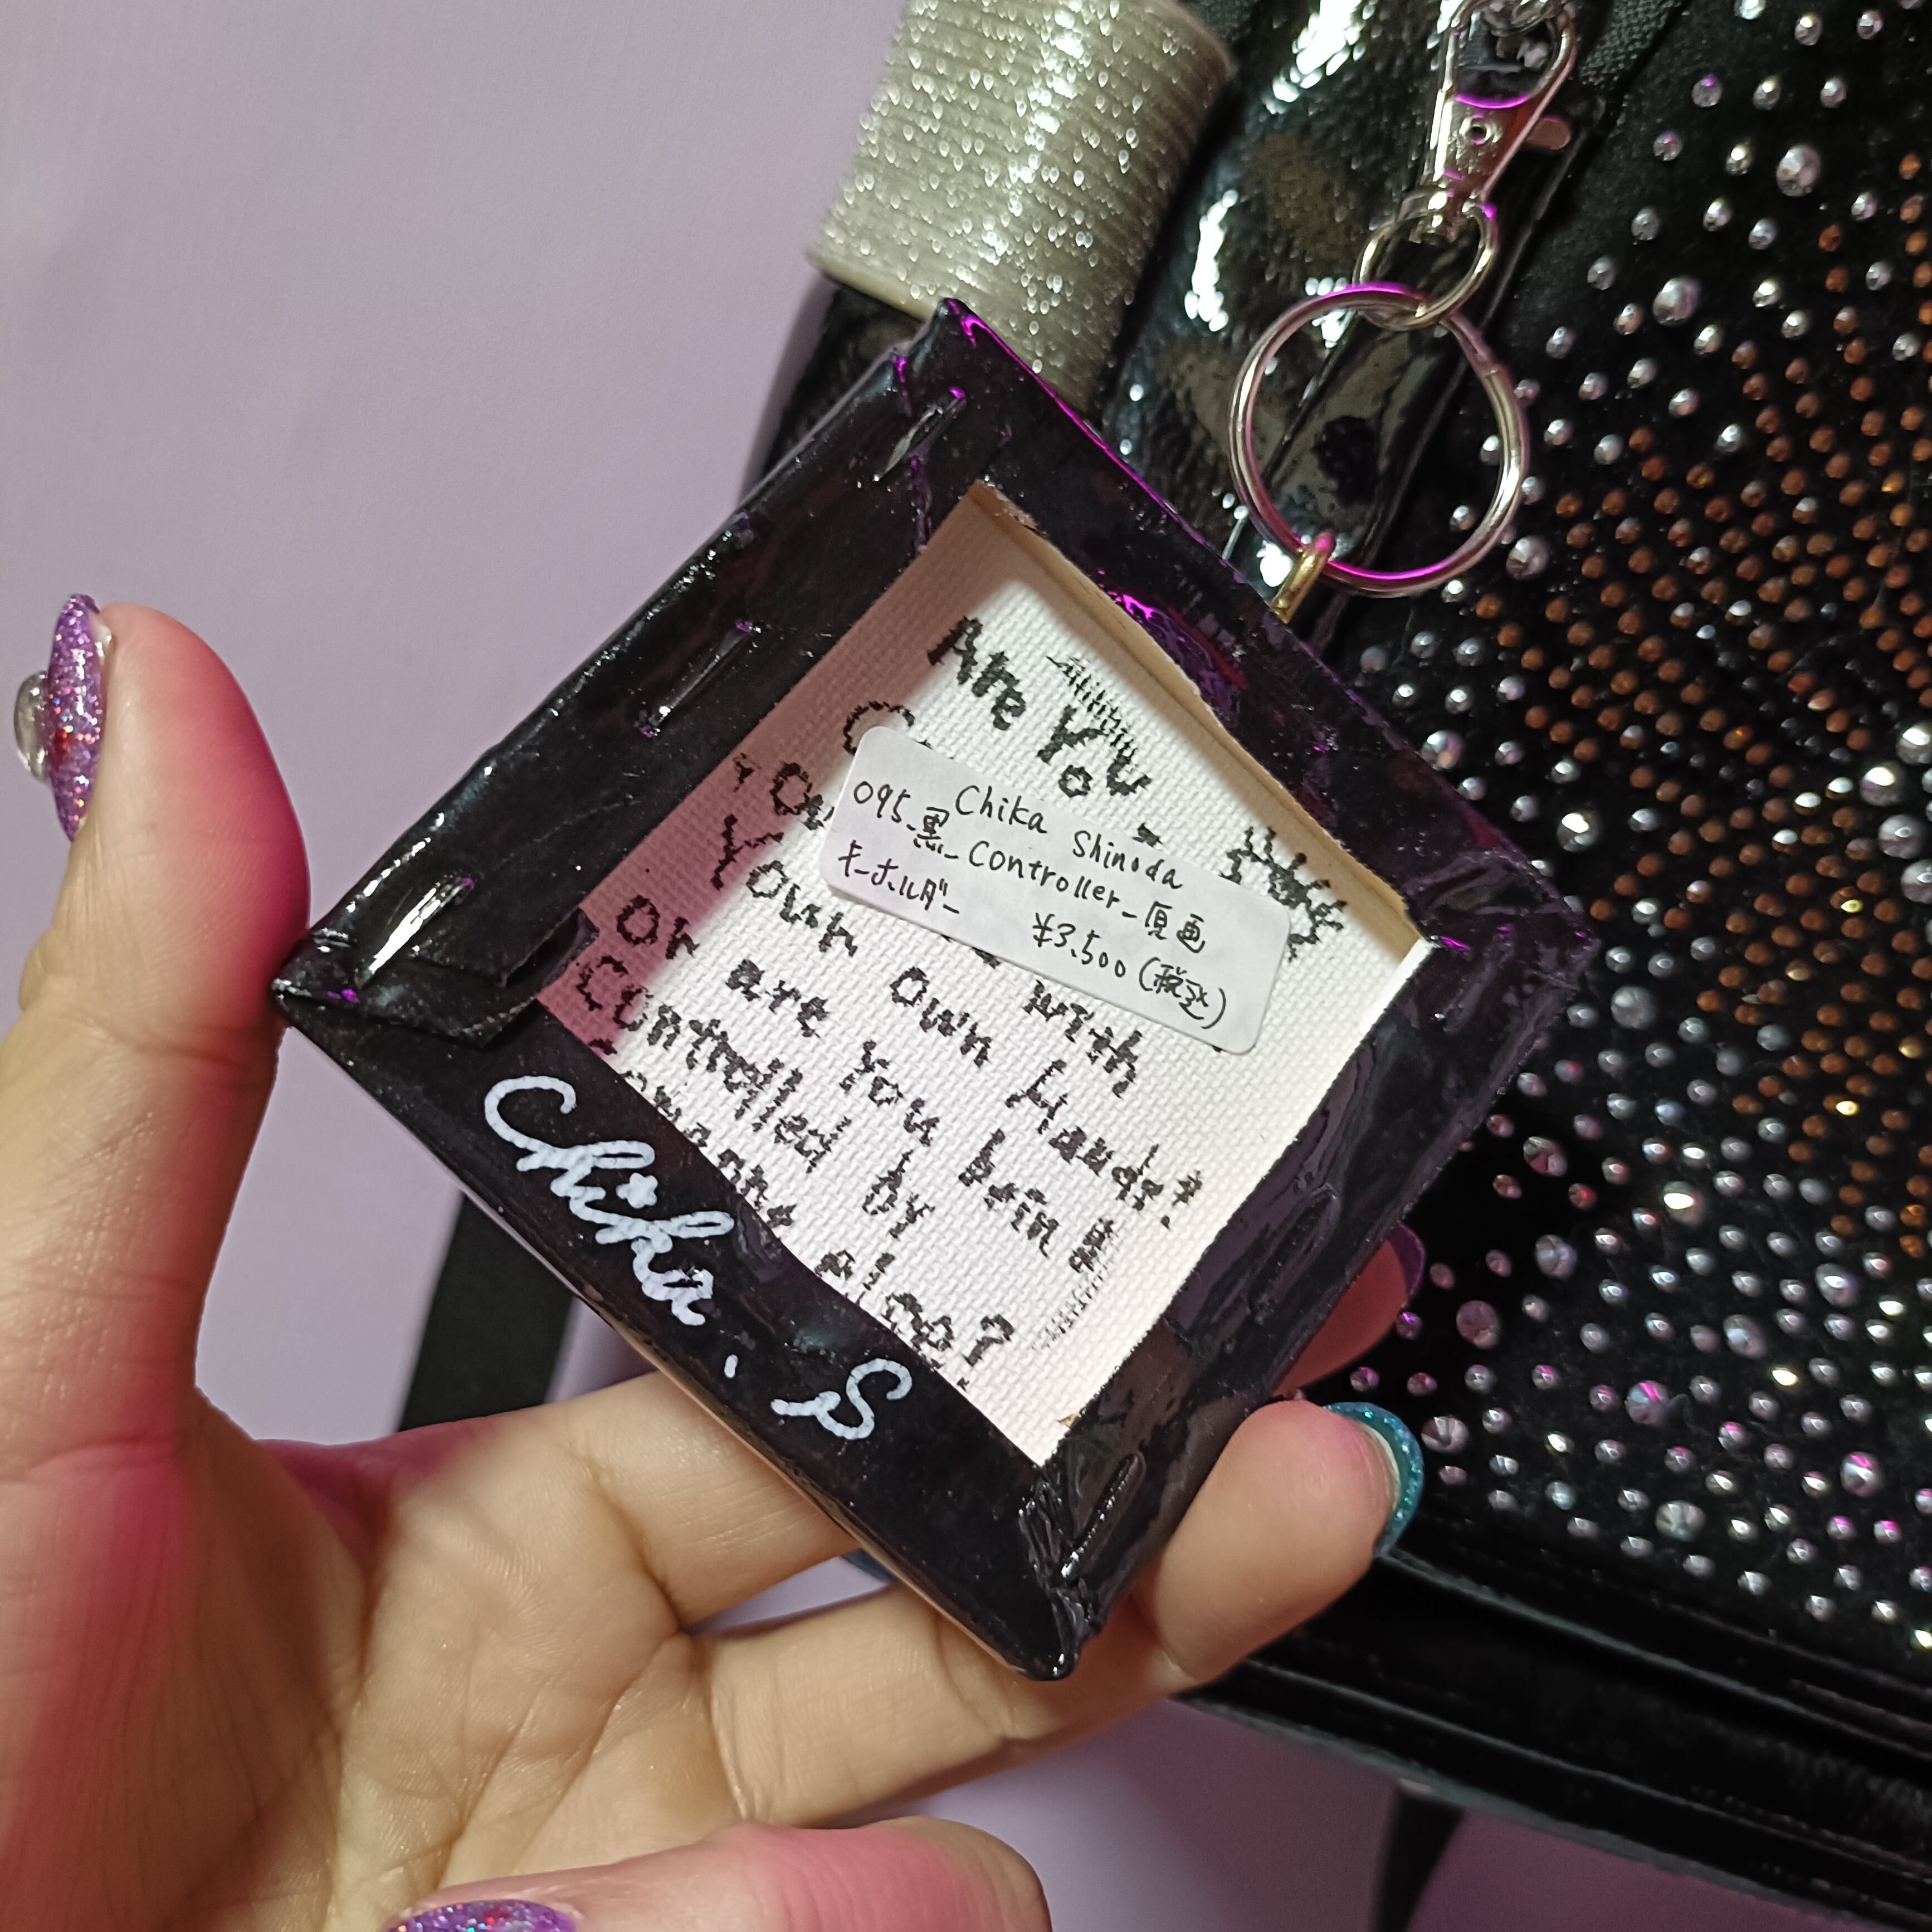 Are You
You
Chika Shinoda
095_黒_Controller_原画
キーホルダー
¥3.500 (税込)
with
Your own Hands?
or are you bein
Controlled by
else?
Chika. S